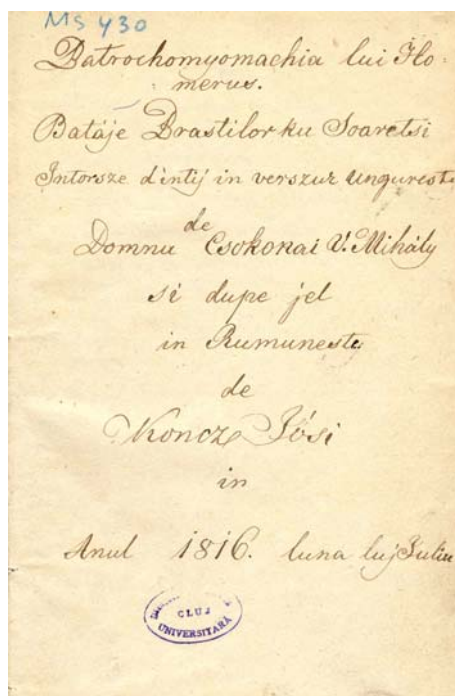 Ms 430
Batrochomyomachia lui Ho-
merus.
Batáje Brastilor ku Soaretsi
Intorsze dintij in verszur ungureste
de
Domnu Csokonai V. Mihály
si dupe jel
in Rumuneste
de
Koncz Jósi
in
Anul 1816. luna luj Juliu
CLUJ
UNIVERSITARĂ